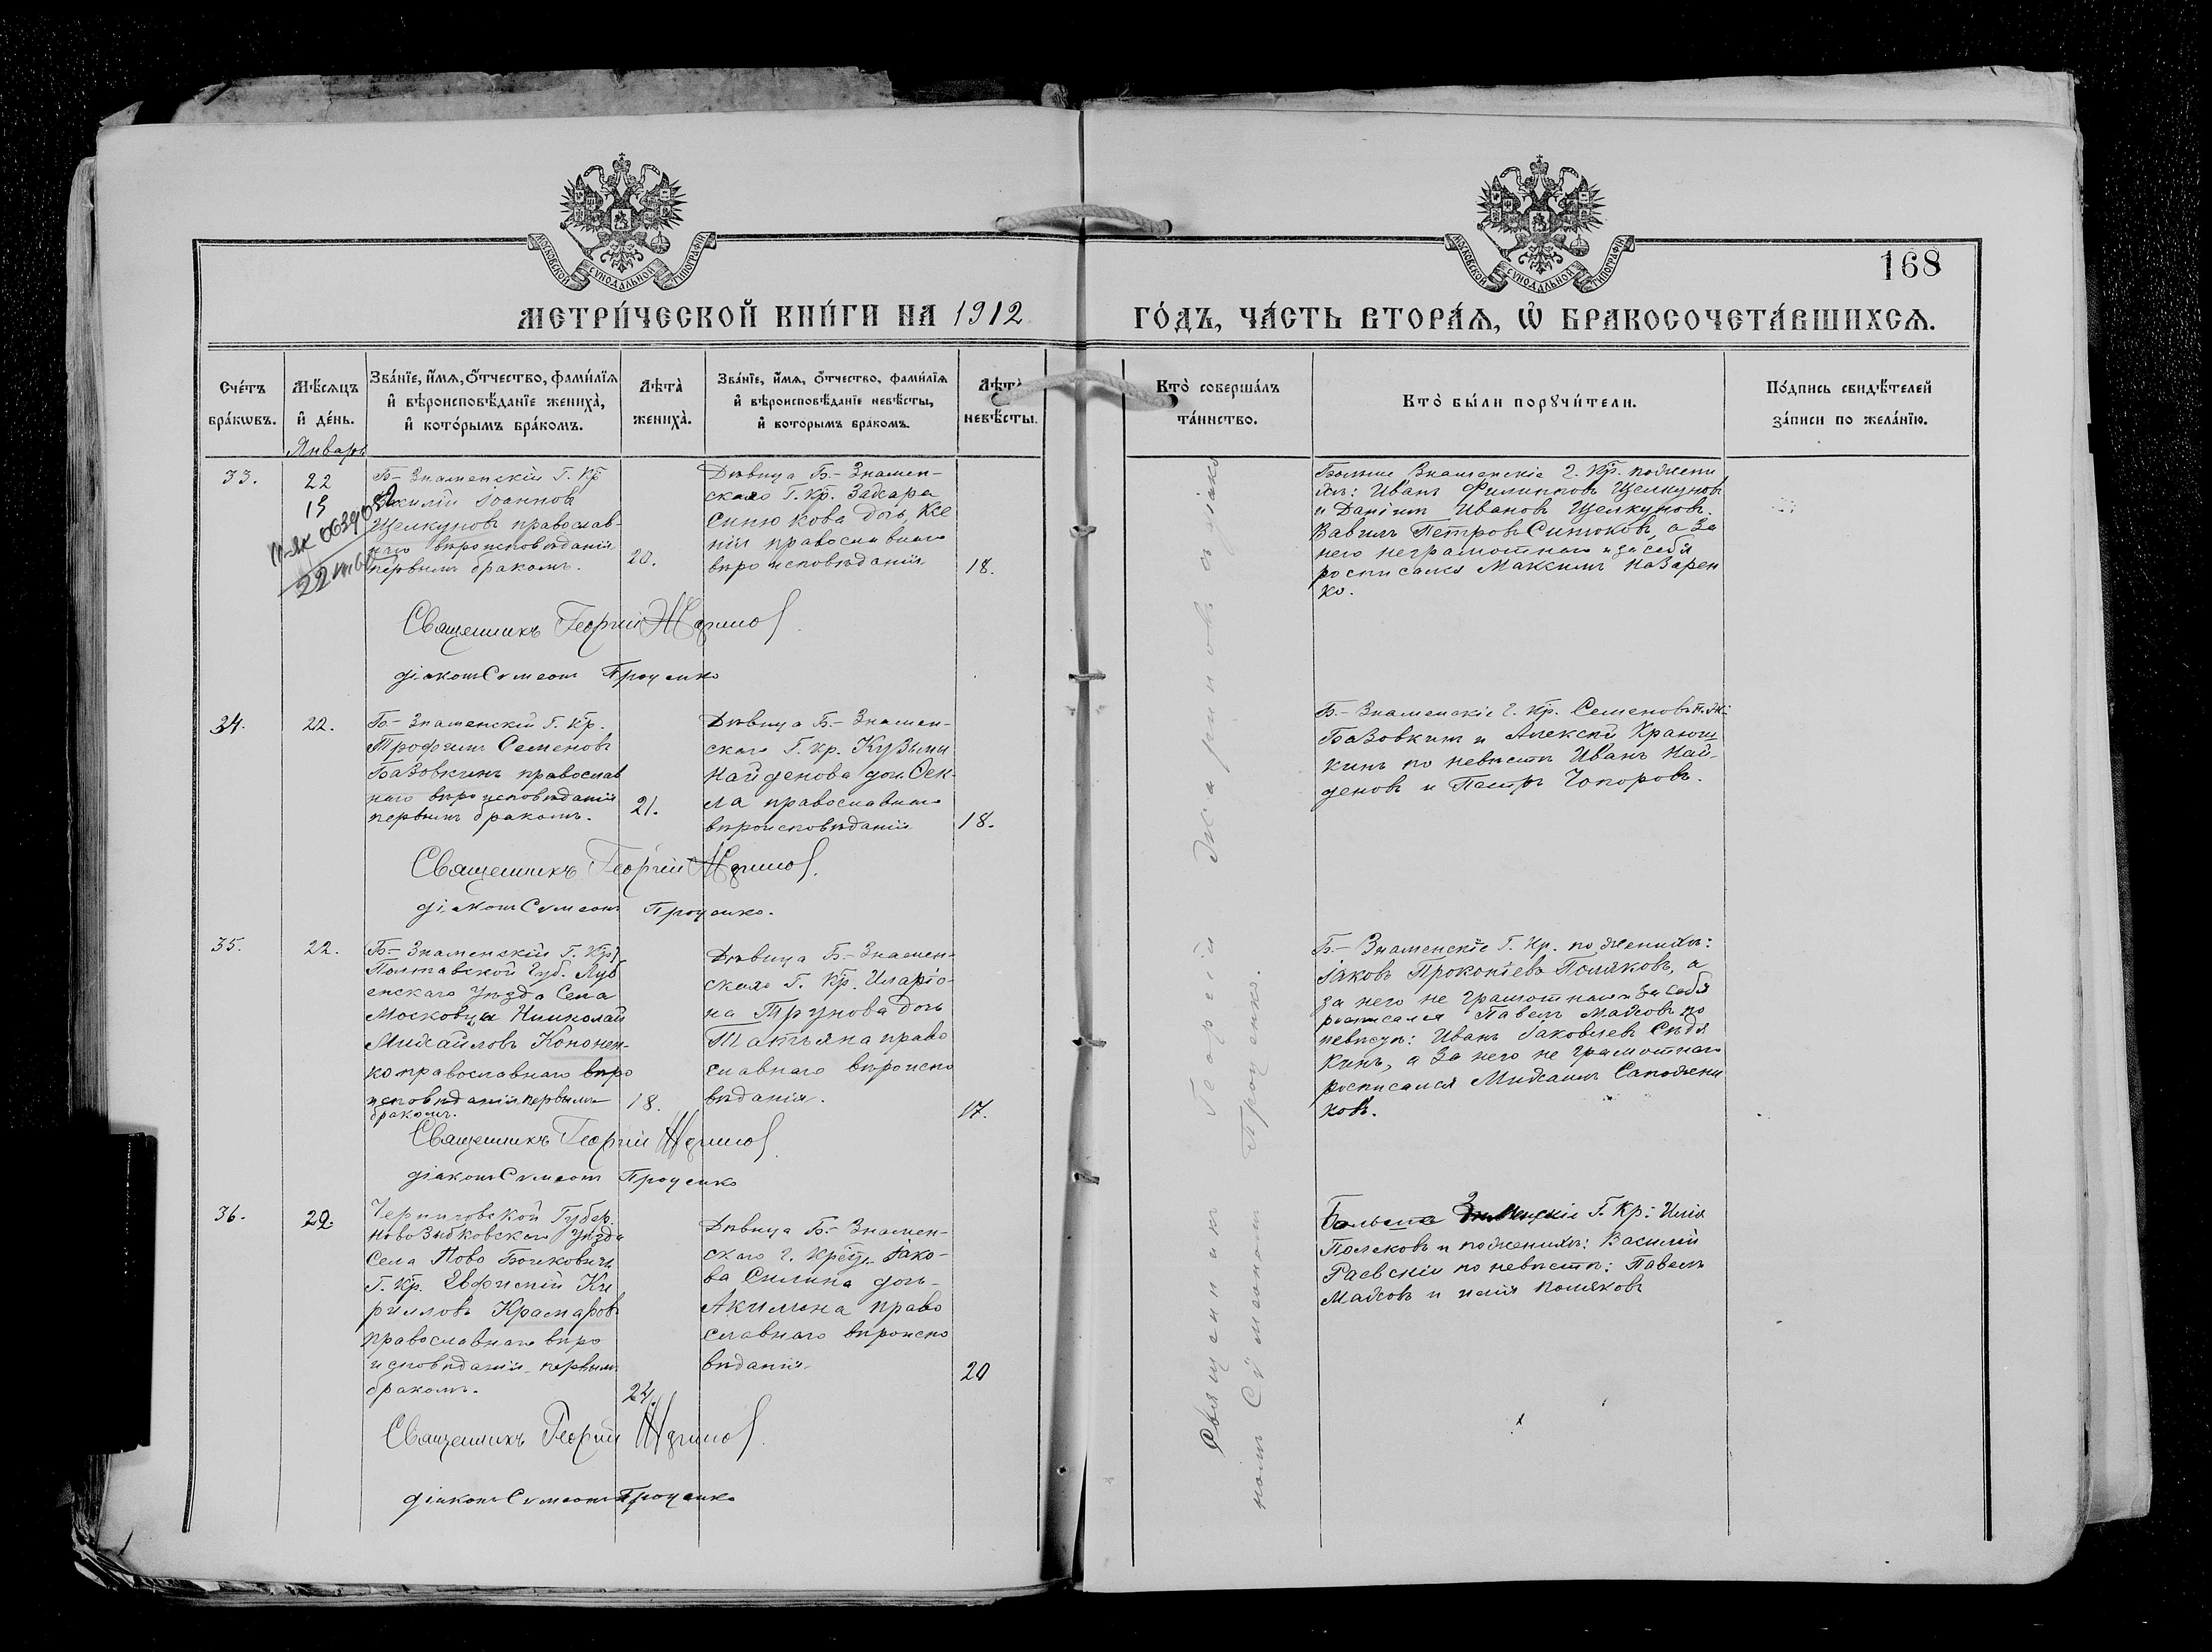 168
МЕТРИЧЕСКОЙ КНИГИ НА 1912 ГОДЪ, ЧАСТЬ ВТОРАЯ, Ѡ БРАКОСОЧЕТАВШИХСЯ.
МОСКОВСКОЙ СѴНОДАЛЬНОЙ ТИПОГРАФІИ
МОСКОВСКОЙ СѴНОДАЛЬНОЙ ТИПОГРАФІИ
Счетъ
браковъ.
Мѣсяцъ
и день.
Званіе, имя, отчество, фамилія
и вѣроисповѣданіе жениха,
и которымъ бракомъ.
Лѣта
жениха.
Званіе, имя, отчество, фамилія
и вѣроисповѣданіе невѣсты,
и которымъ бракомъ.
Лѣта
невѣсты.
Кто совершалъ
таинство.
Кто были поручители.
Подпись свидѣтелей
записи по желанію.
Январь
33.
22
Б.- Знаменскій Г. Кр
Іоанновъ
Щелкуновъ православ-
наго вѣроисповѣданія
первымъ бракомъ.
20.
Дѣвица Б.- Знамен-
скаго Г. Кр. Захара
Синюкова дочь Ксе
нія православнаго
вѣроисповѣданія
18.
Больше Знаменскіе Г. Кр. по жени
хѣ: Иванъ Филипповъ Щелкуновъ
и Даніилъ Ивановъ Щелкуновъ.
Вавилъ Петровъ Синюковъ, а за
него неграмотнаго и за себя
росписался Максимъ Назарен
ко.
Священникъ Георгій Жариновъ
діаконъ Сумеонъ Проценко
34.
22.
Б.- Знаменскій Г. Кр.
Трофимъ Семеновъ
Базовкинъ православ
наго вѣроисповѣданія
первымъ бракомъ.
21.
Дѣвица Б.- Знамен-
скаго Г. Кр. Кузьмы
Найденова доч. Ѳек-
ла православнаго
вѣроисповѣданія
18.
Б.- Знаменскіе Г. Кр. Семеновъ
Базовкинъ и Алексѣй Краюш
кинъ по невѣстѣ Иванъ Най-
деновъ и Петръ Чопоровъ.
Священникъ Георгій Жариновъ.
діаконъ Сумеонъ Проценко.
35.
22.
Б.- Знаменскій Г. Кр.
Полтавской Губ. Луб
енскаго Уѣзда Села
Московца Николай
Михайловъ Кононен-
ко православнаго вѣро
исповѣданія первымъ
бракомъ.
18.
Дѣвица Б.- Знамен-
скаго Г. Кр. Иларіо-
на Трунова дочь
Татьяна право
славнаго вѣроиспо
вѣданія.
17.
Б.- Знаменскіе Г. Кр. по женихѣ:
Іаковъ Прокопіевъ Поляковъ, а
за него не грамотнаго и за себя
росписался Павелъ Маховъ по
невѣстѣ: Иванъ Іаковлевъ Сѣдя
кинъ, а за него не грамотнаго
росписался Михаилъ Сапожни
ковъ.
Священникъ Георгій Жариновъ
діаконъ Сумеонъ Проценко
36.
29.
Черниговской Губер.
Новозыбковскаго Уѣзда
Села Ново Бобовичъ
Г. Кр. Евфимій Ки
рилловъ
православнаго вѣро
исповѣданія первымъ
бракомъ.
24.
Дѣвица Б.- Знамен-
скаго Г. Крест. Іако-
ва Силина дочь
Акилина право
славнаго вѣроиспо
вѣданія
20
Больше Знаменскіе Г. Кр: Илія
Поляковъ и по женихѣ: Василій
Раевскій по невѣстѣ: Павелъ
Маховъ и илія Поляковъ
Священникъ Георгій Жариновъ
діаконъ Сумеонъ Проценко
Священникъ Георгій Жариновъ діако
номъ Сумеономъ Проценко.